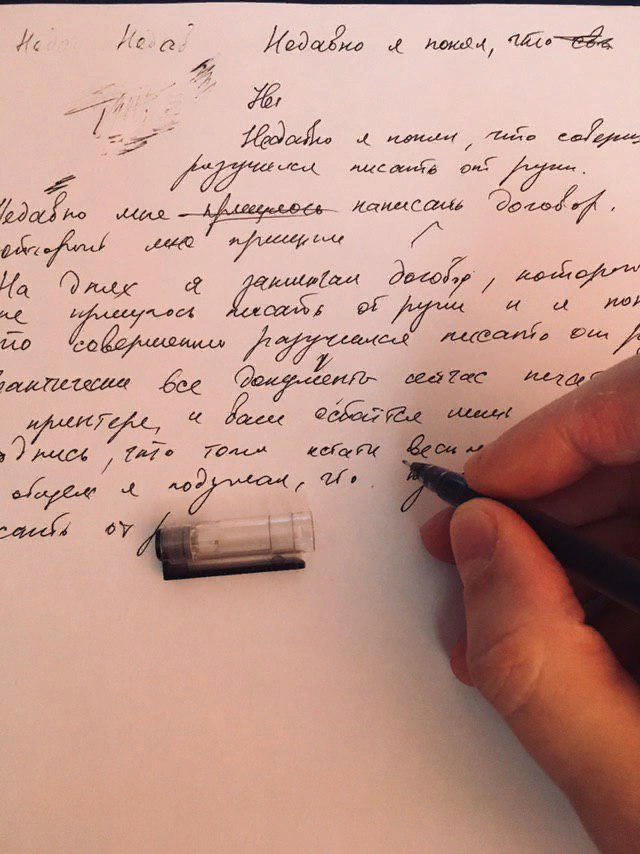 Неда Недав Недавно я понял, что
Не
Недавно я понял, что совершен
разучился писать от руки.
Недавно мне пришлось написать договор.
который мне пришлось
На днях я заключал договор, который
мне пришлось писать от руки и я пон
что совершенно разучился писать от р
рактически все документы сейчас печат
принтере, и вам остаётся лишь
одпись, что тоже кстати весьма
общем я подумал, что
сать от р